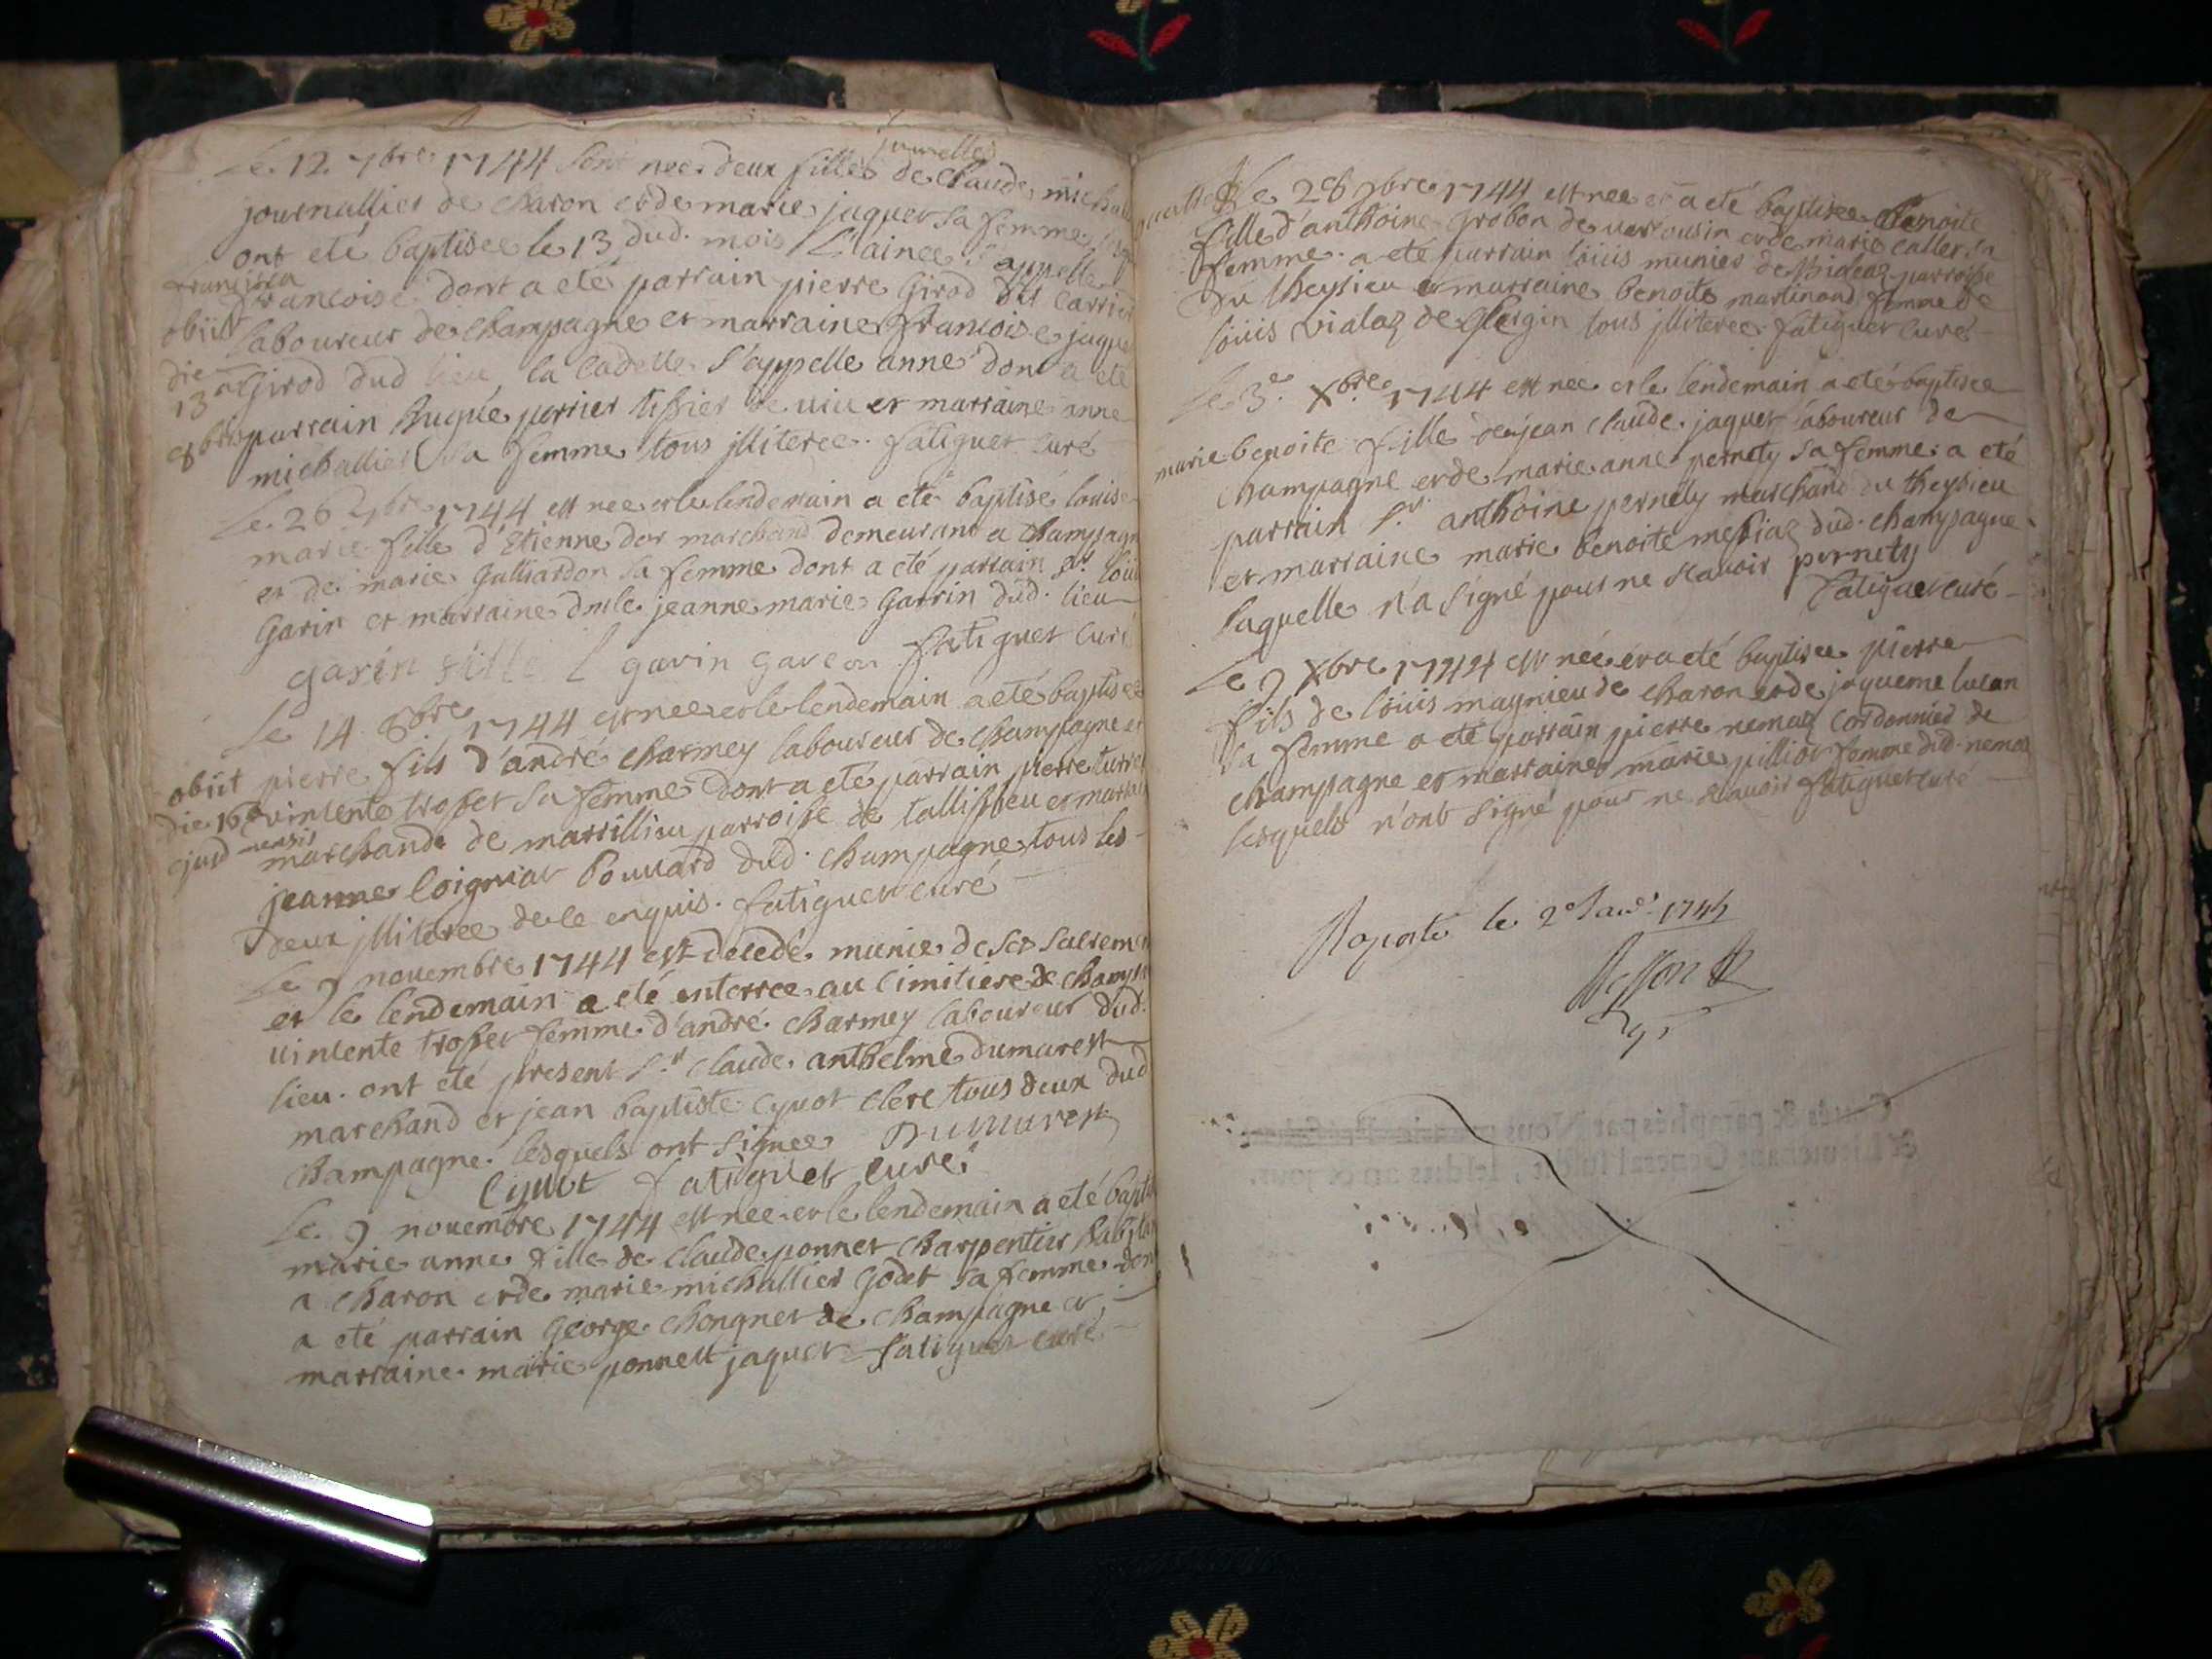 jumelles
Le 12 7bre 1744 sont nee deux filles de Claude michal
journallier de charon et de marie jaquet sa femme
ont eté baptisee le 13 dud. mois L'ainee s'appelle
francoise dont a eté parrain pierre Girod dit Carrier
laboureur de champagne et marraine francoise jaque
Girod dud lieu la cadette s'appelle anne dont a eté
parrain hugue perrier tissier de uiu et marraine anne
michallier sa femme tous jlliteree. fatiguet curé
francisca
obiit
die
13a
8bris
Le 26 7bre 1744 est nee et le lendemain a eté baptisé louise
marie fille d'Etienne dor marchand demeurant a champagne
et de marie Gulliardon sa femme dont a eté parrain sr. loui
Garin et marraine dmle jeanne marie Garin dud. lieu
garin fille L garin garcon fatiguet curé
Le 14 8bre 1744 est nee et le lendemain a eté baptisé
pierre fils d'andré charmey laboureur de champagne et
uincente trosset sa femme dont a eté parrain pierre turre
marchand de marrillieu parroisse de tallissieu et marrai
jeanne loigniat bouuard dud. champagne tous les
deux jlliteree de ce enquis. fatiguet curé
obiit
die 16a
ejusd mensis
Le 9 nouembre 1744 est decedé munie de ses sacremen
et le lendemain a eté enterree au cimitiere de champa
uincente trosset femme d'andré charmey laboureur dud.
lieu. ont eté present sr. claude anthelme dumarest
marchand et jean baptiste cyuot clerc tous deux dud
champagne lesquels ont signee Dumarest
Cyuot fatiguet curé
Le 9 nouembre 1744 est nee et le lendemain a eté bapti
marie anne fille de claude ponnet charpentier habita
a charon et de marie michallier godet sa femme don
a eté parrain george chongnet de champagne et
marraine marie ponnett jaquet fatiguet curé
Le 28 9bre 1744 est nee et a eté baptisee benoite
fille d'anthoine grobon de uercousin et de marie caller sa
femme a eté parrain louis munier de bideaz parroisse
du theysieu et marraine benoite martinand femme de
louis vialaz de glargin tous jlliteree fatiguet curé
Le 3e Xbre 1744 est nee et le lendemain a eté baptisee
marie benoite fille de jean claude jaquet laboureur de
champagne et de marie anne pernety sa femme a eté
parrain sr. anthoine pernety marchand du theysieu
et marraine marie benoite messiaz dud. champagne
laquelle n'a signé pour ne scauoir pernety
fatiguet curé
Le 9 Xbre 1744 est née et a eté baptisee pierre
fils de louis magnieu de charon et de jaqueme lucan
sa femme a eté parrain pierre nemoz cordonnier de
champagne et marraine marie pilliot femme dud. nemoz
lesquels n'ont signé pour ne scauoir fatiguet curé
Raporté le 2e Janr. 1745